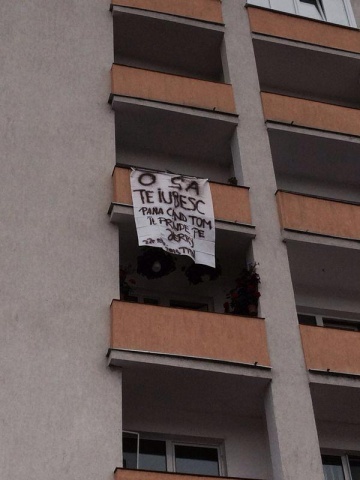 O SA
TE IUBESC
PANA CÂND TOM
IL PRINDE PE
JERRY